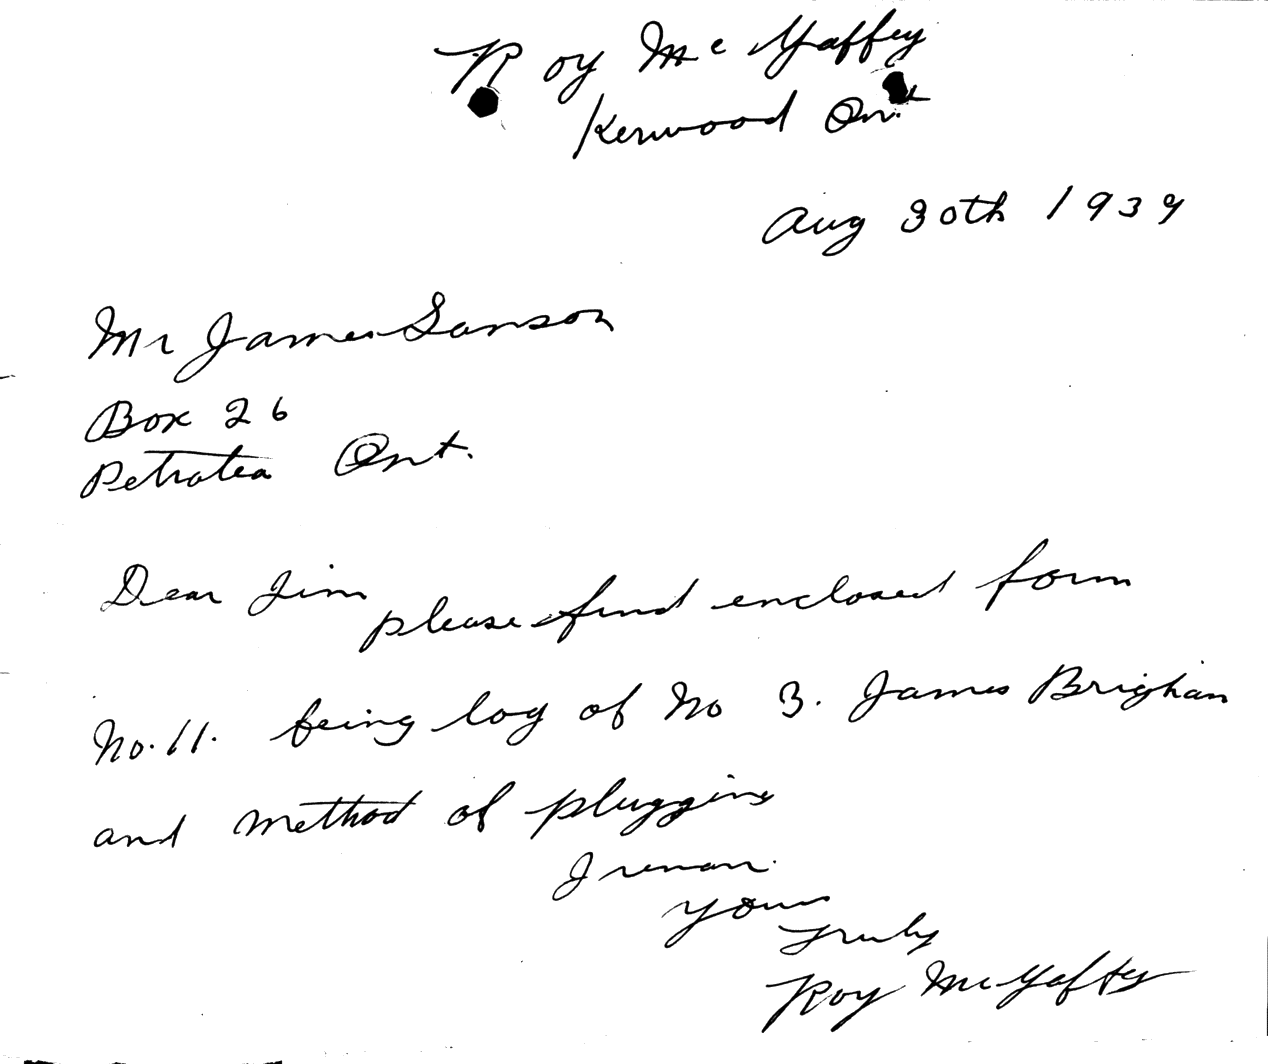 Roy McGaffey
Kerwood Ont
Aug 30th 1939
Mr James Sanson
Box 26
Petrolea Ont.
Dear Jim
please find enclosed form
No. 11. being log of No 3. James Brighan
and method of plugging
I reman.
yours
Truly
Roy McGaffey